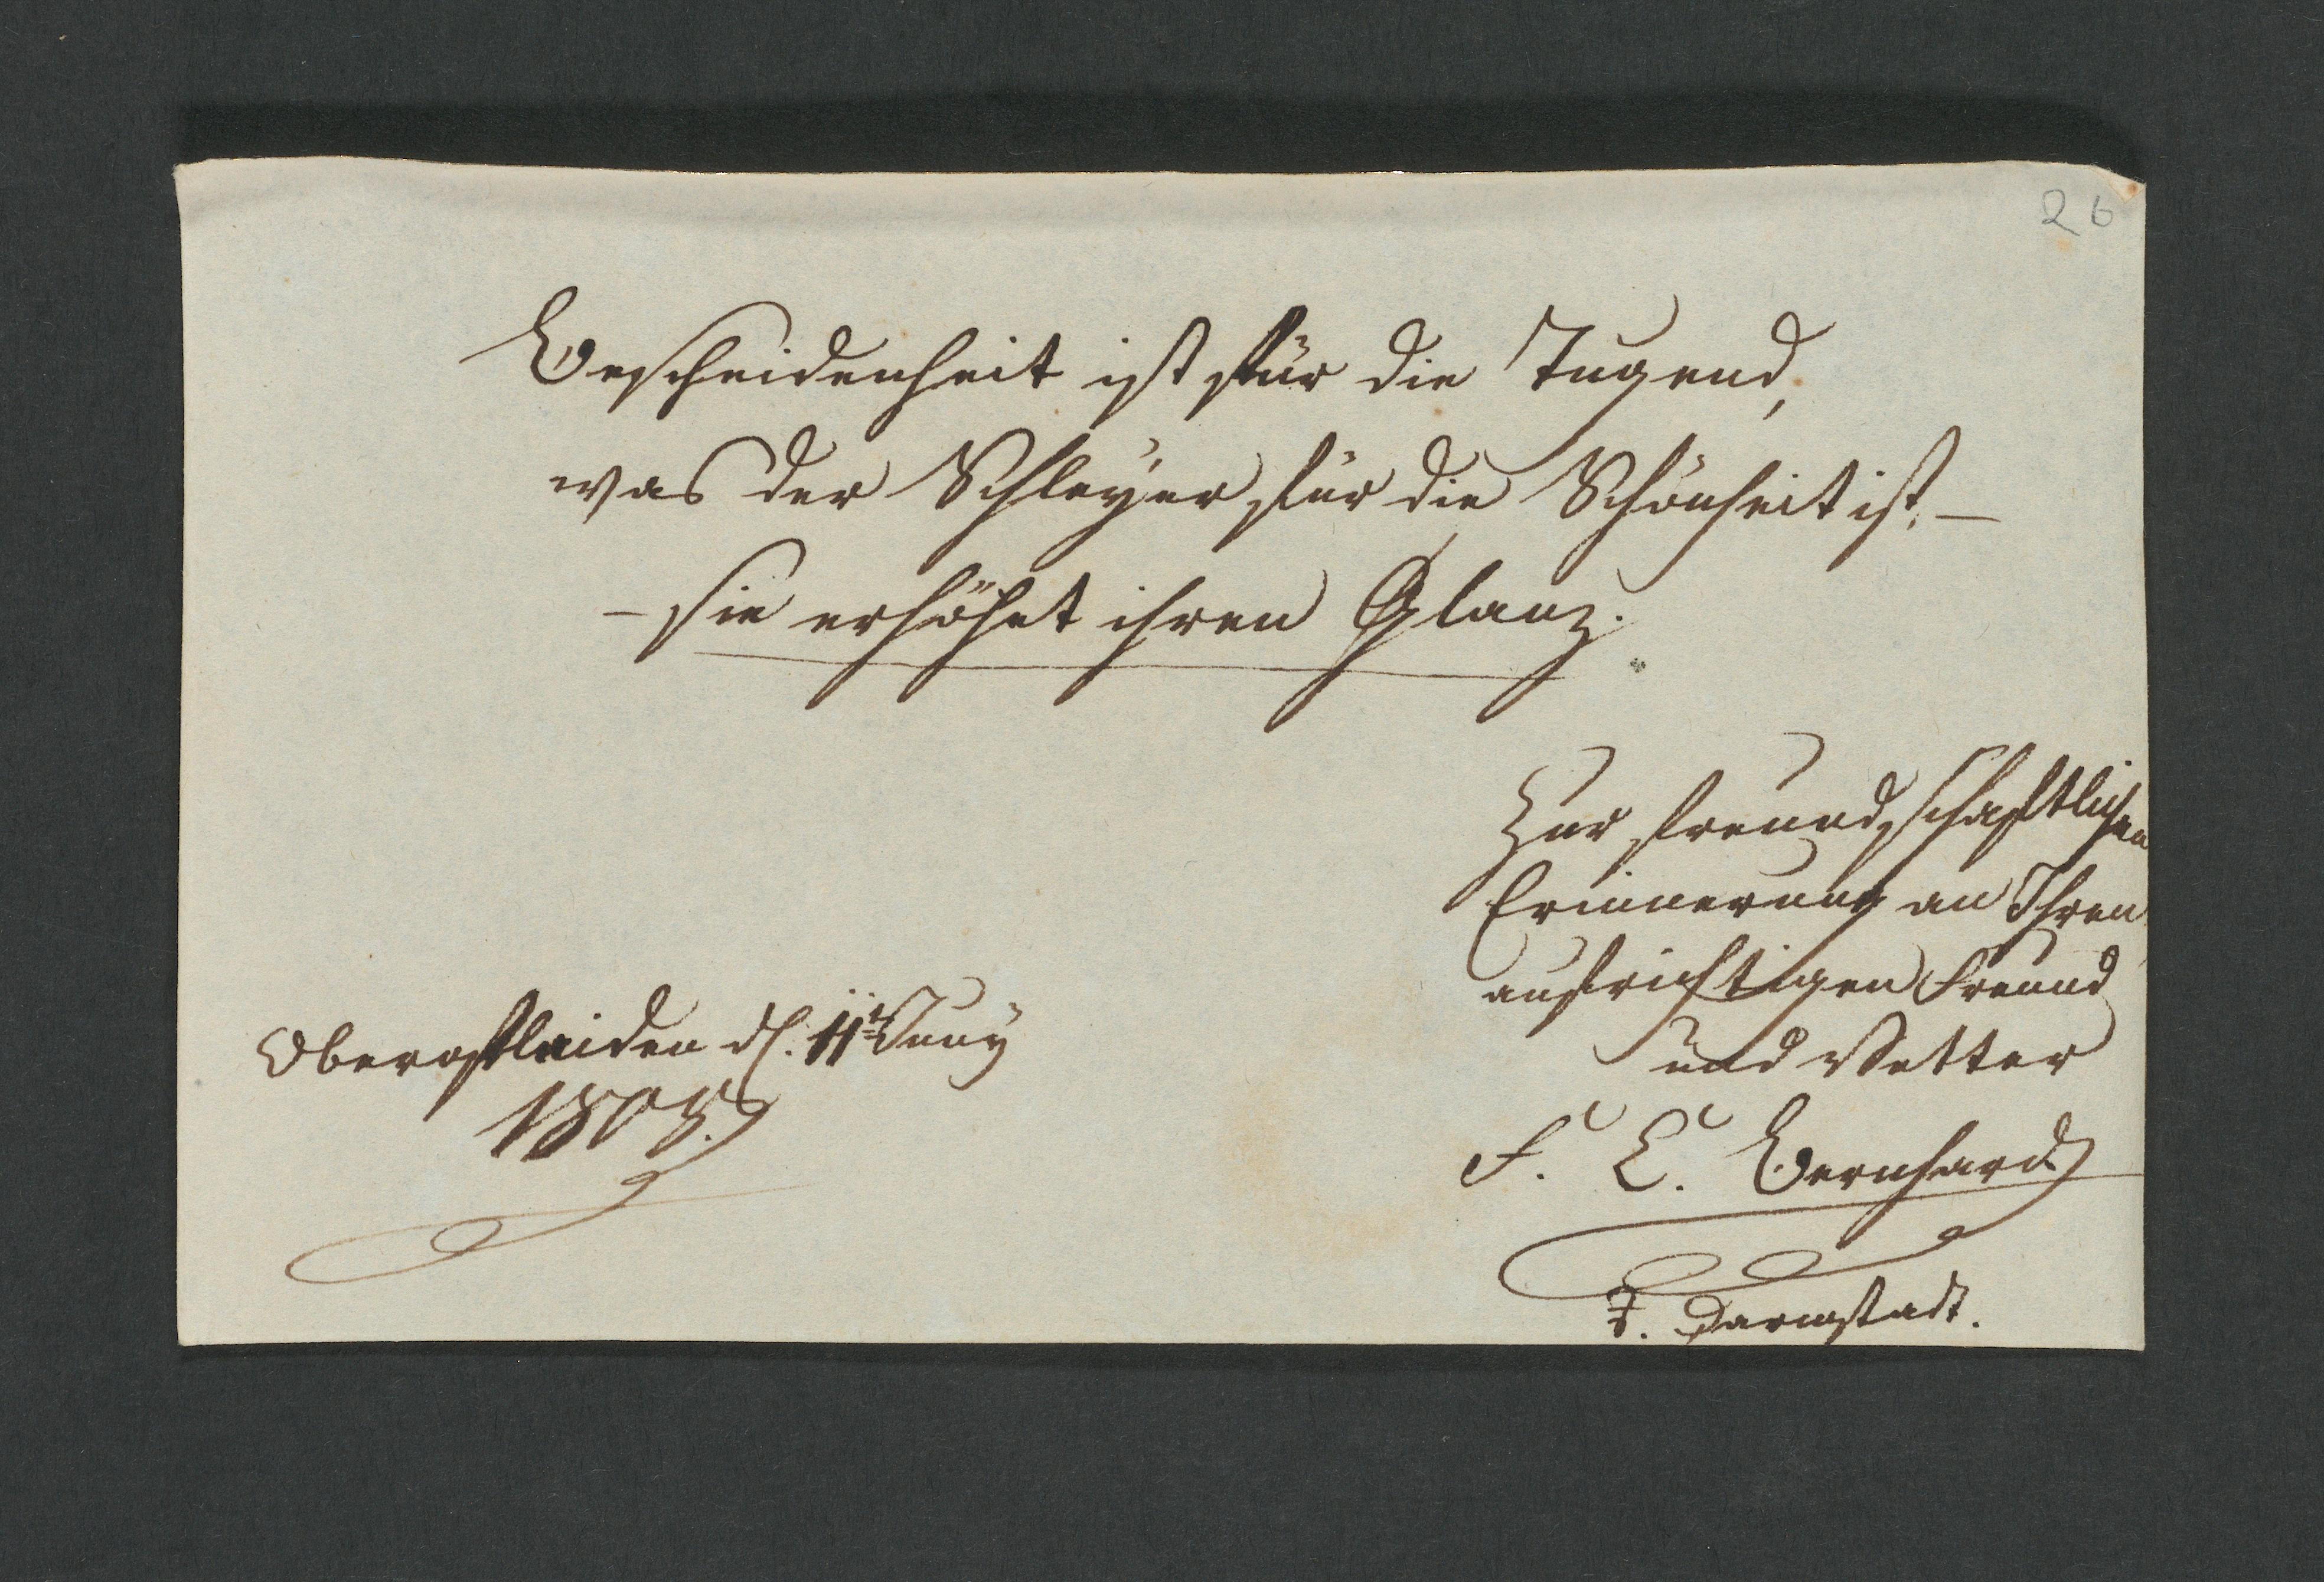 26
Bescheidenheit ist für die Tugend,
was der Schleyer für die Schönheit ist, —
— sie erhöhet ihren Glanz.
Zur freundschaftlichen
Erinnerung an Ihren
aufrichtigen Freund
und Vetter
F. L. Bernhard
Darmstadt.
Oberofleiden d. 11t Juny
1808.